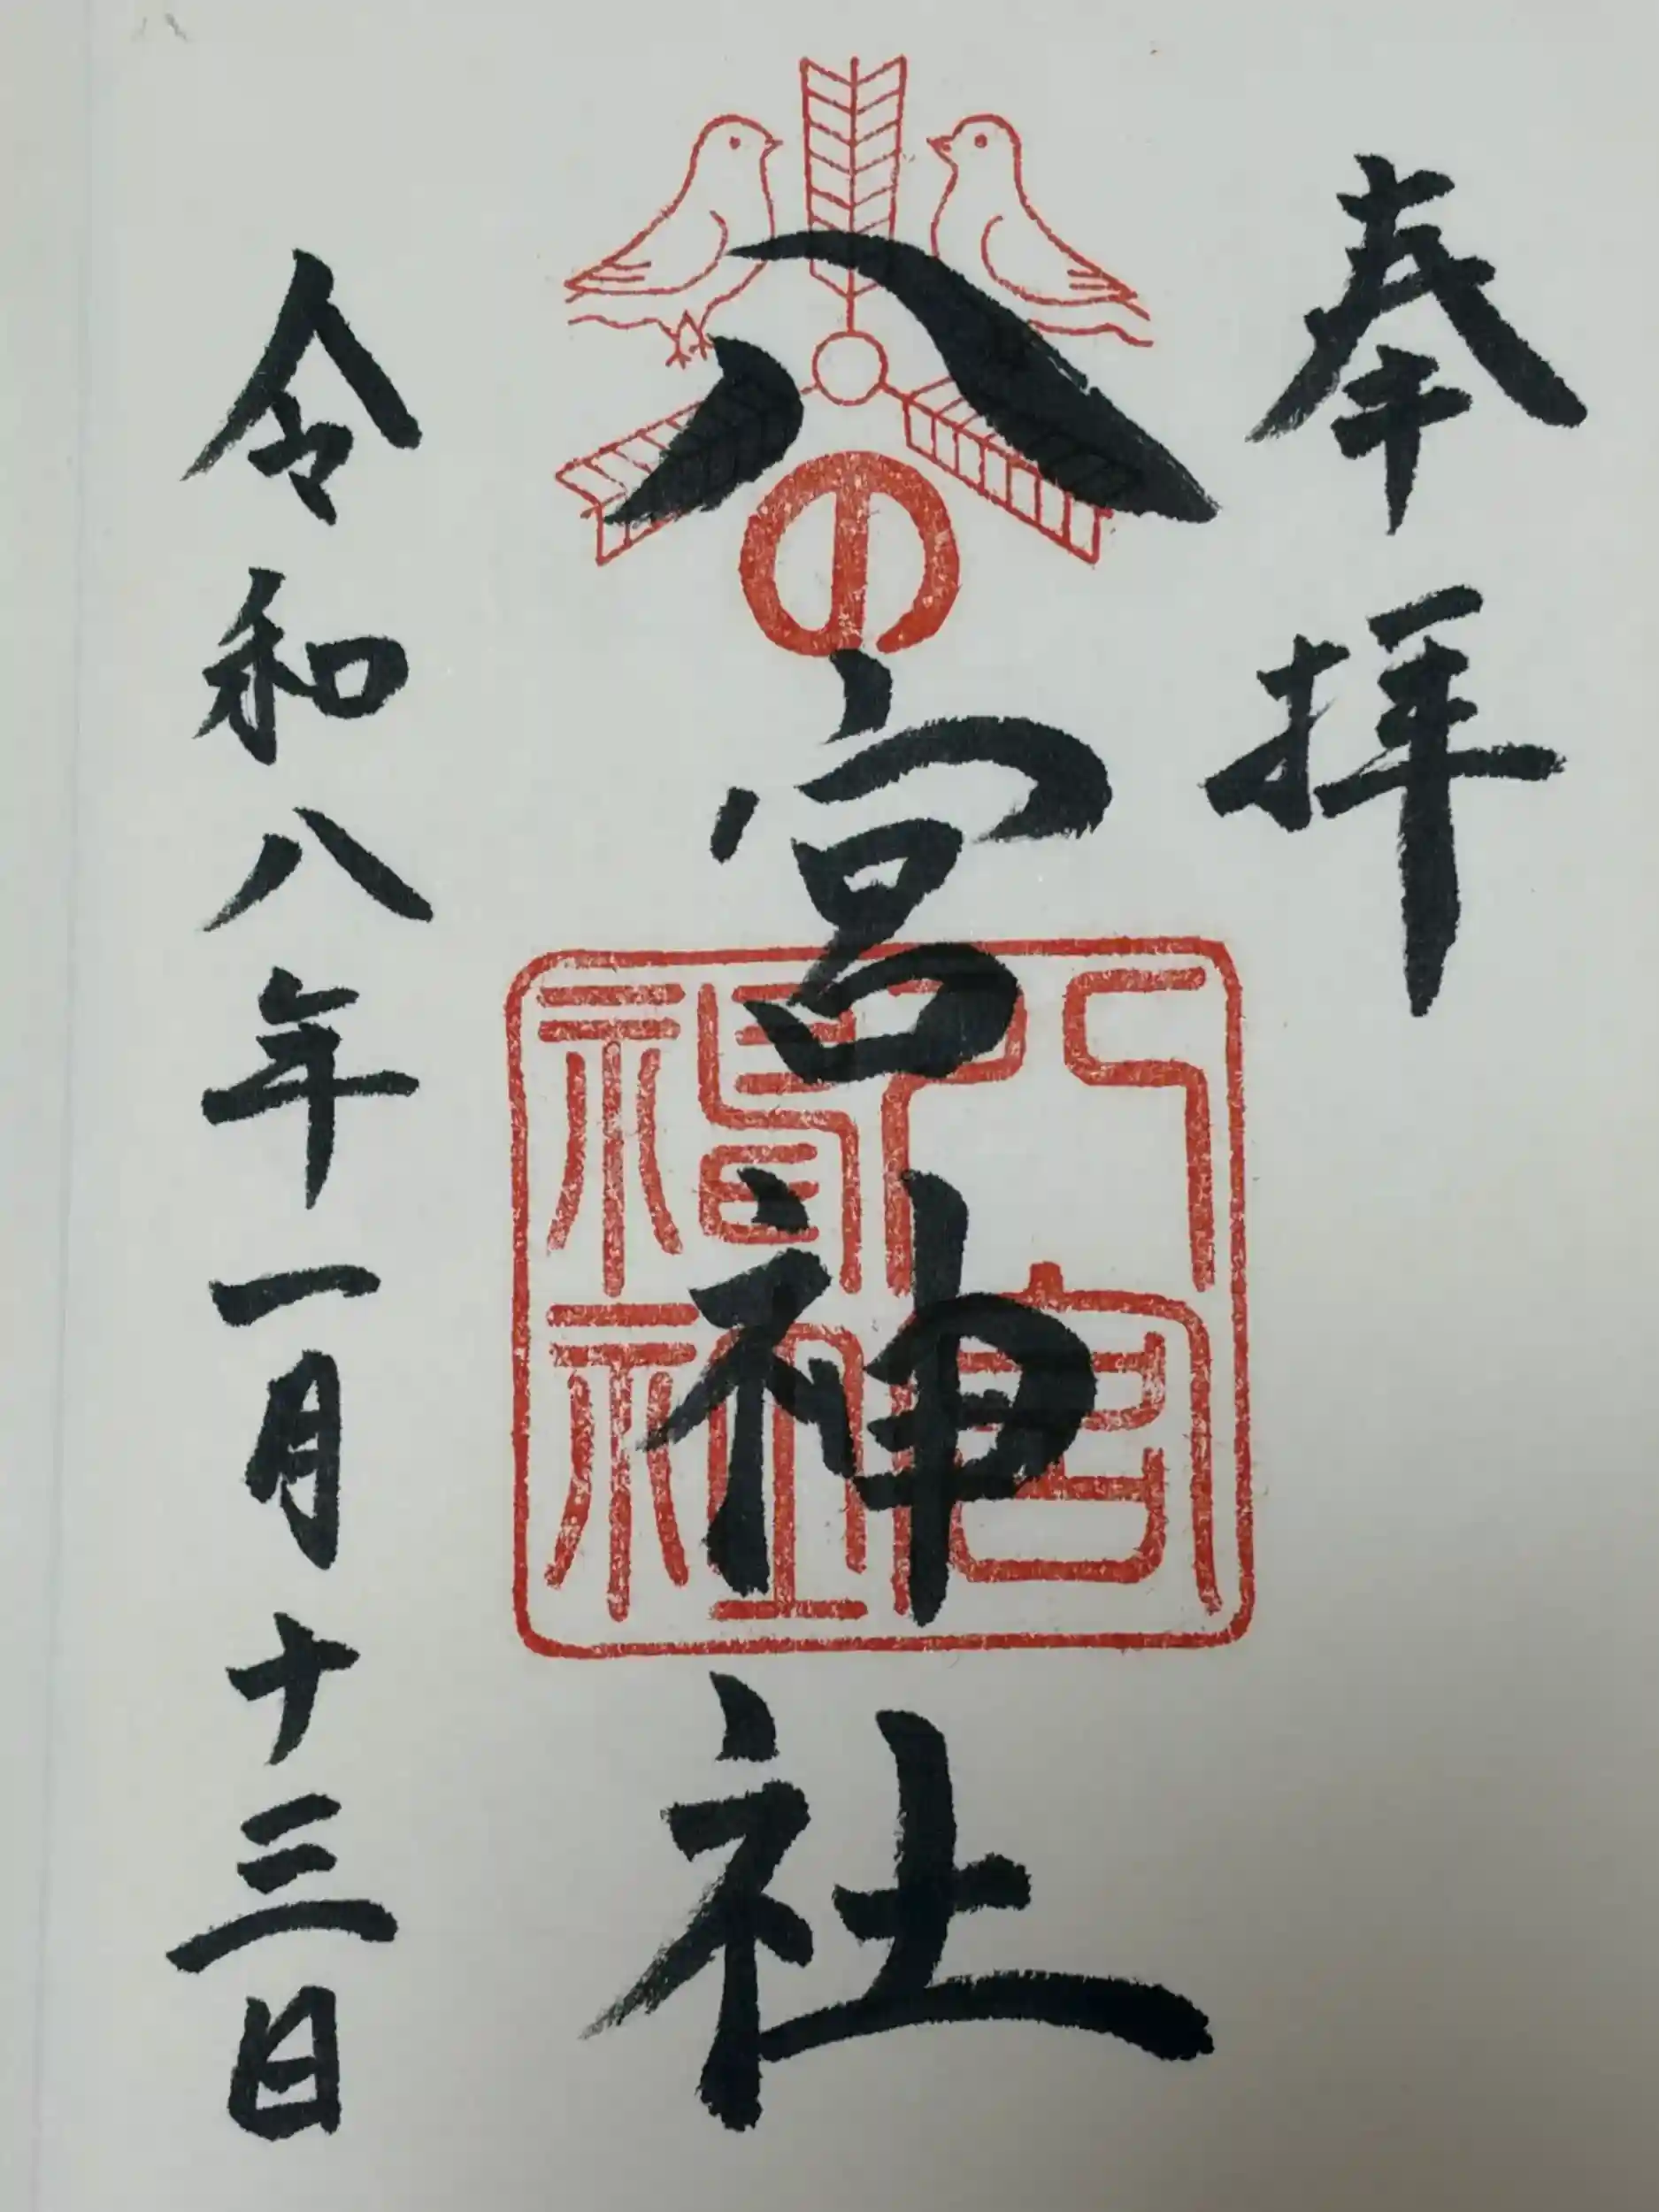 奉拝
八の宮神社
八宮神社
令和八年一月十三日